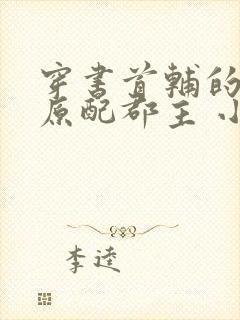 穿书首辅的
原配郡主 小
李逵